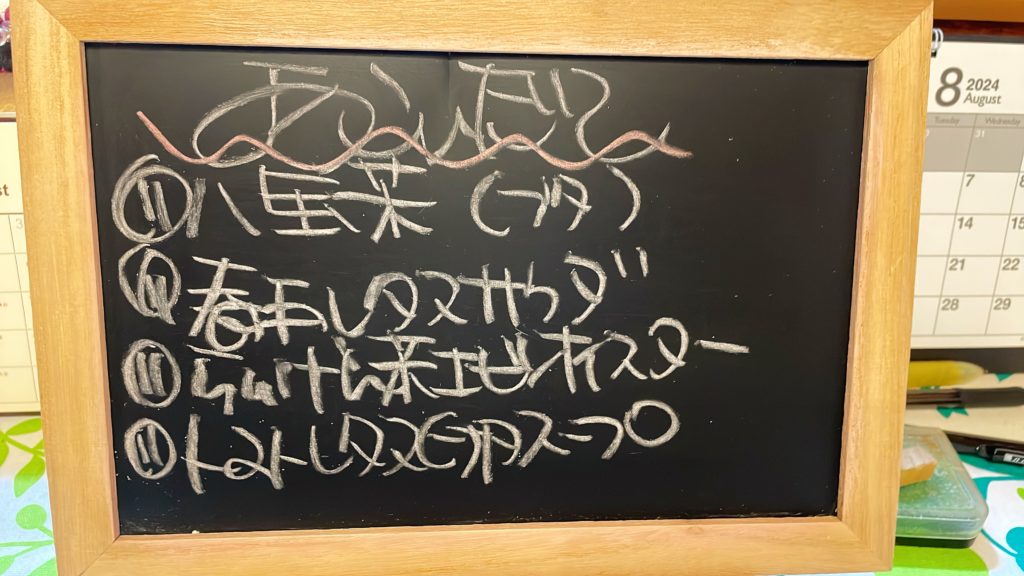 八宝菜（ブタ）
春雨レタスサラダ
ちんげん菜エビオイスター
トマトレタス スープ
8 2024
August
Tuesday Wednesday
31
7
14 15
21 22
28 29